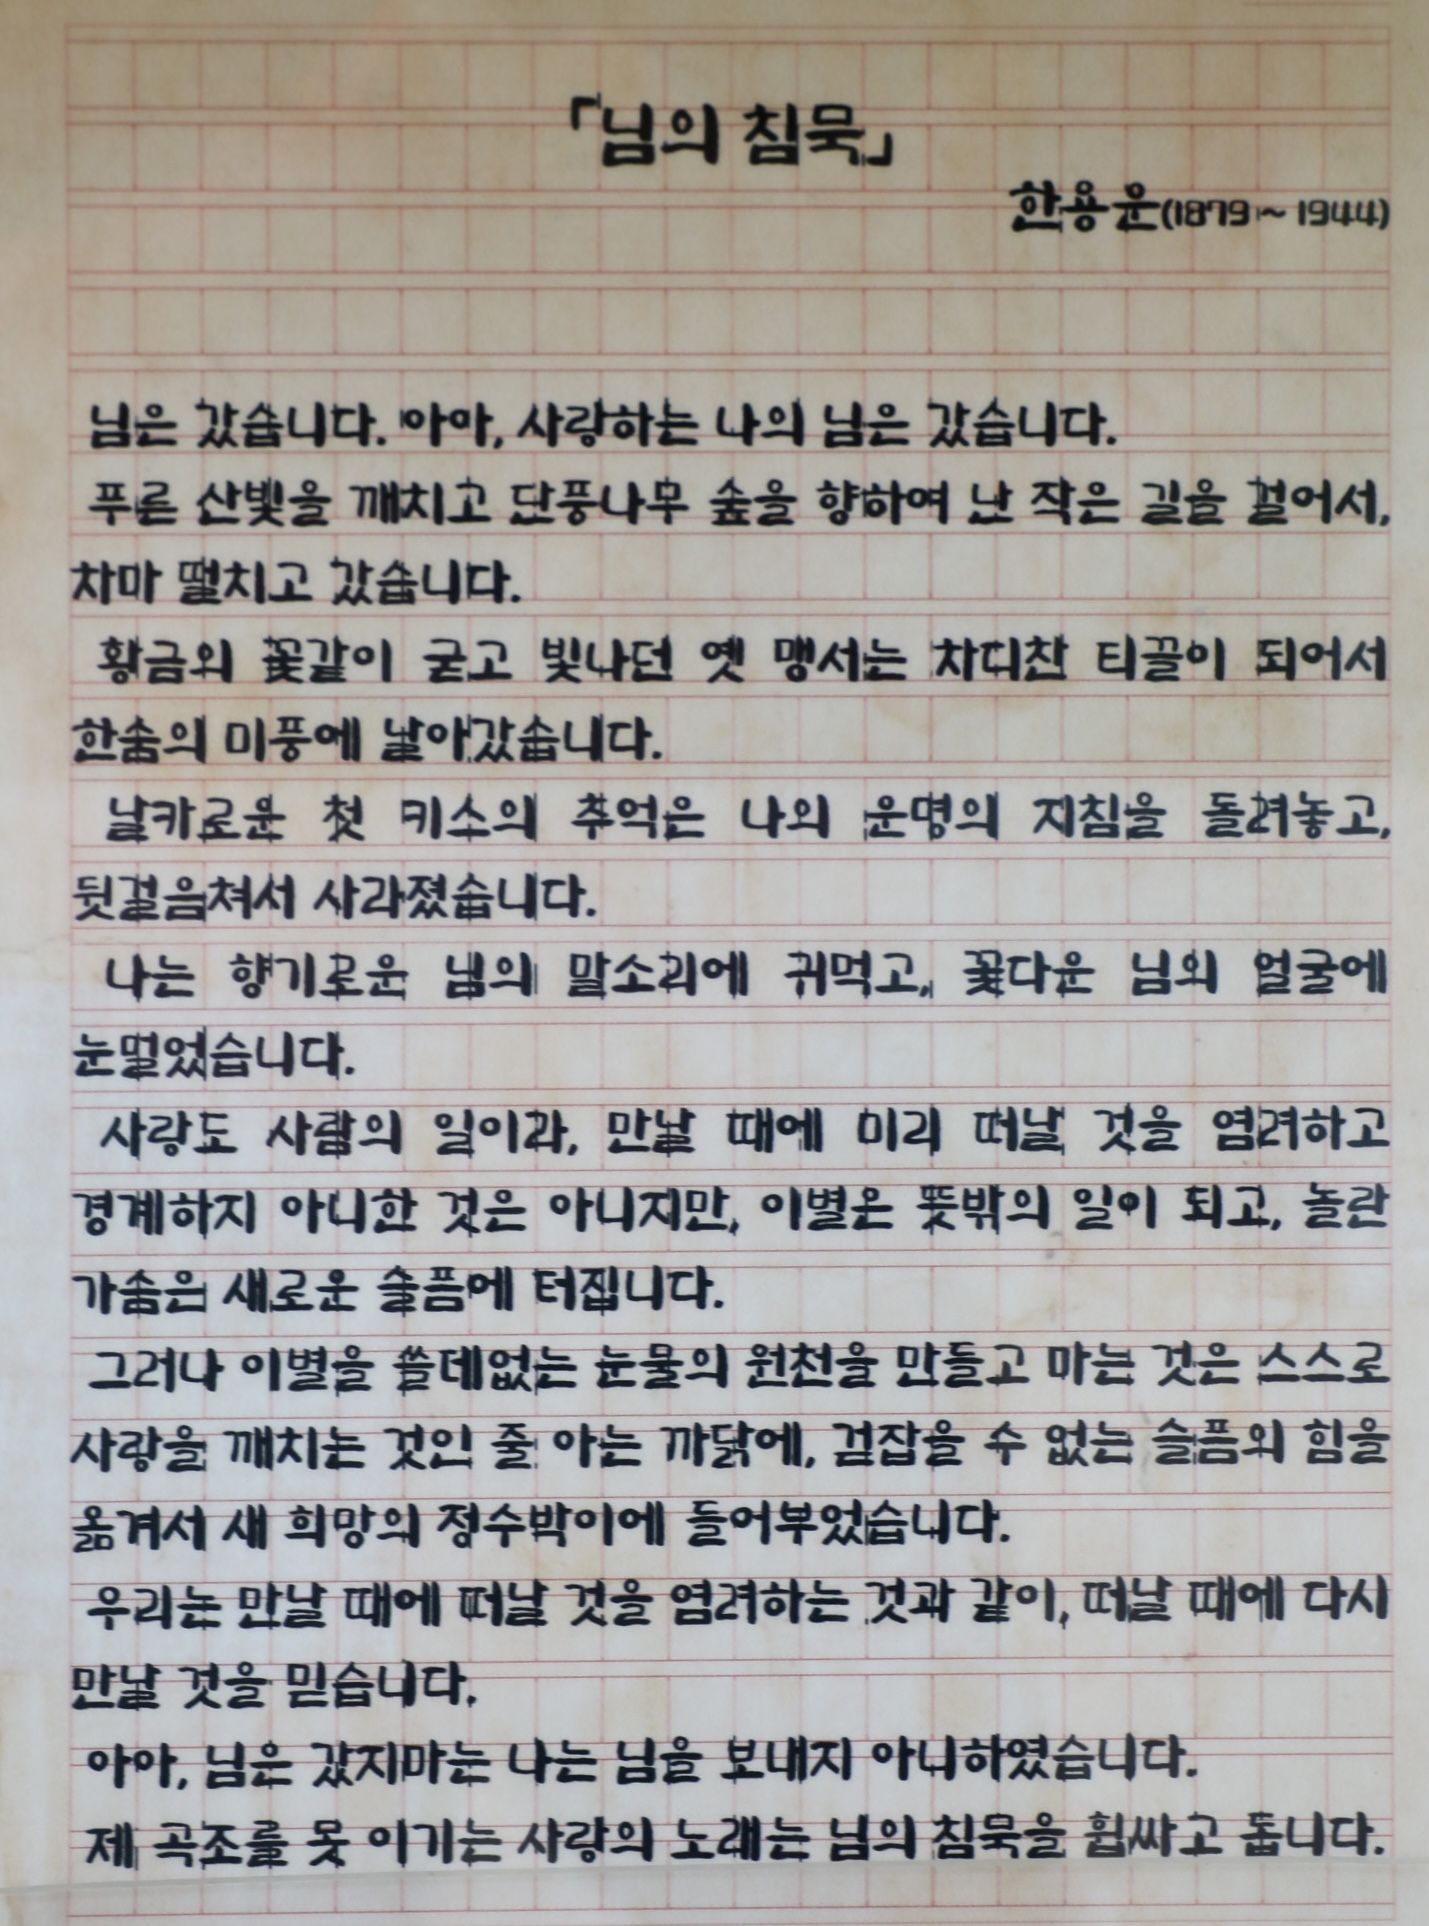 「님의 침묵」
한용운(1879 ~ 1944)
님은 갔습니다. 아아, 사랑하는 나의 님은 갔습니다.
푸른 산빛을 깨치고 단풍나무 숲을 향하여 난 작은 길을 걸어서,
차마 떨치고 갔습니다.
황금의 꽃같이 굳고 빛나던 옛 맹서는 차디찬 티끌이 되어서
한숨의 미풍에 날아갔습니다.
날카로운 첫 키스의 추억은 나의 운명의 지침을 돌려놓고,
뒷걸음쳐서 사라졌습니다.
나는 향기로운 님의 말소리에 귀먹고, 꽃다운 님의 얼굴에
눈멀었습니다.
사랑도 사람의 일이라, 만날 때에 미리 떠날 것을 염려하고
경계하지 아니한 것은 아니지만, 이별은 뜻밖의 일이 되고, 놀란
가슴은 새로운 슬픔에 터집니다.
그러나 이별을 쓸데없는 눈물의 원천을 만들고 마는 것은 스스로
사랑을 깨치는 것인 줄 아는 까닭에, 걷잡을 수 없는 슬픔의 힘을
옮겨서 새 희망의 정수박이에 들어부었습니다.
우리는 만날 때에 떠날 것을 염려하는 것과 같이, 떠날 때에 다시
만날 것을 믿습니다.
아아, 님은 갔지마는 나는 님을 보내지 아니하였습니다.
제 곡조를 못 이기는 사랑의 노래는 님의 침묵을 휩싸고 돕니다.